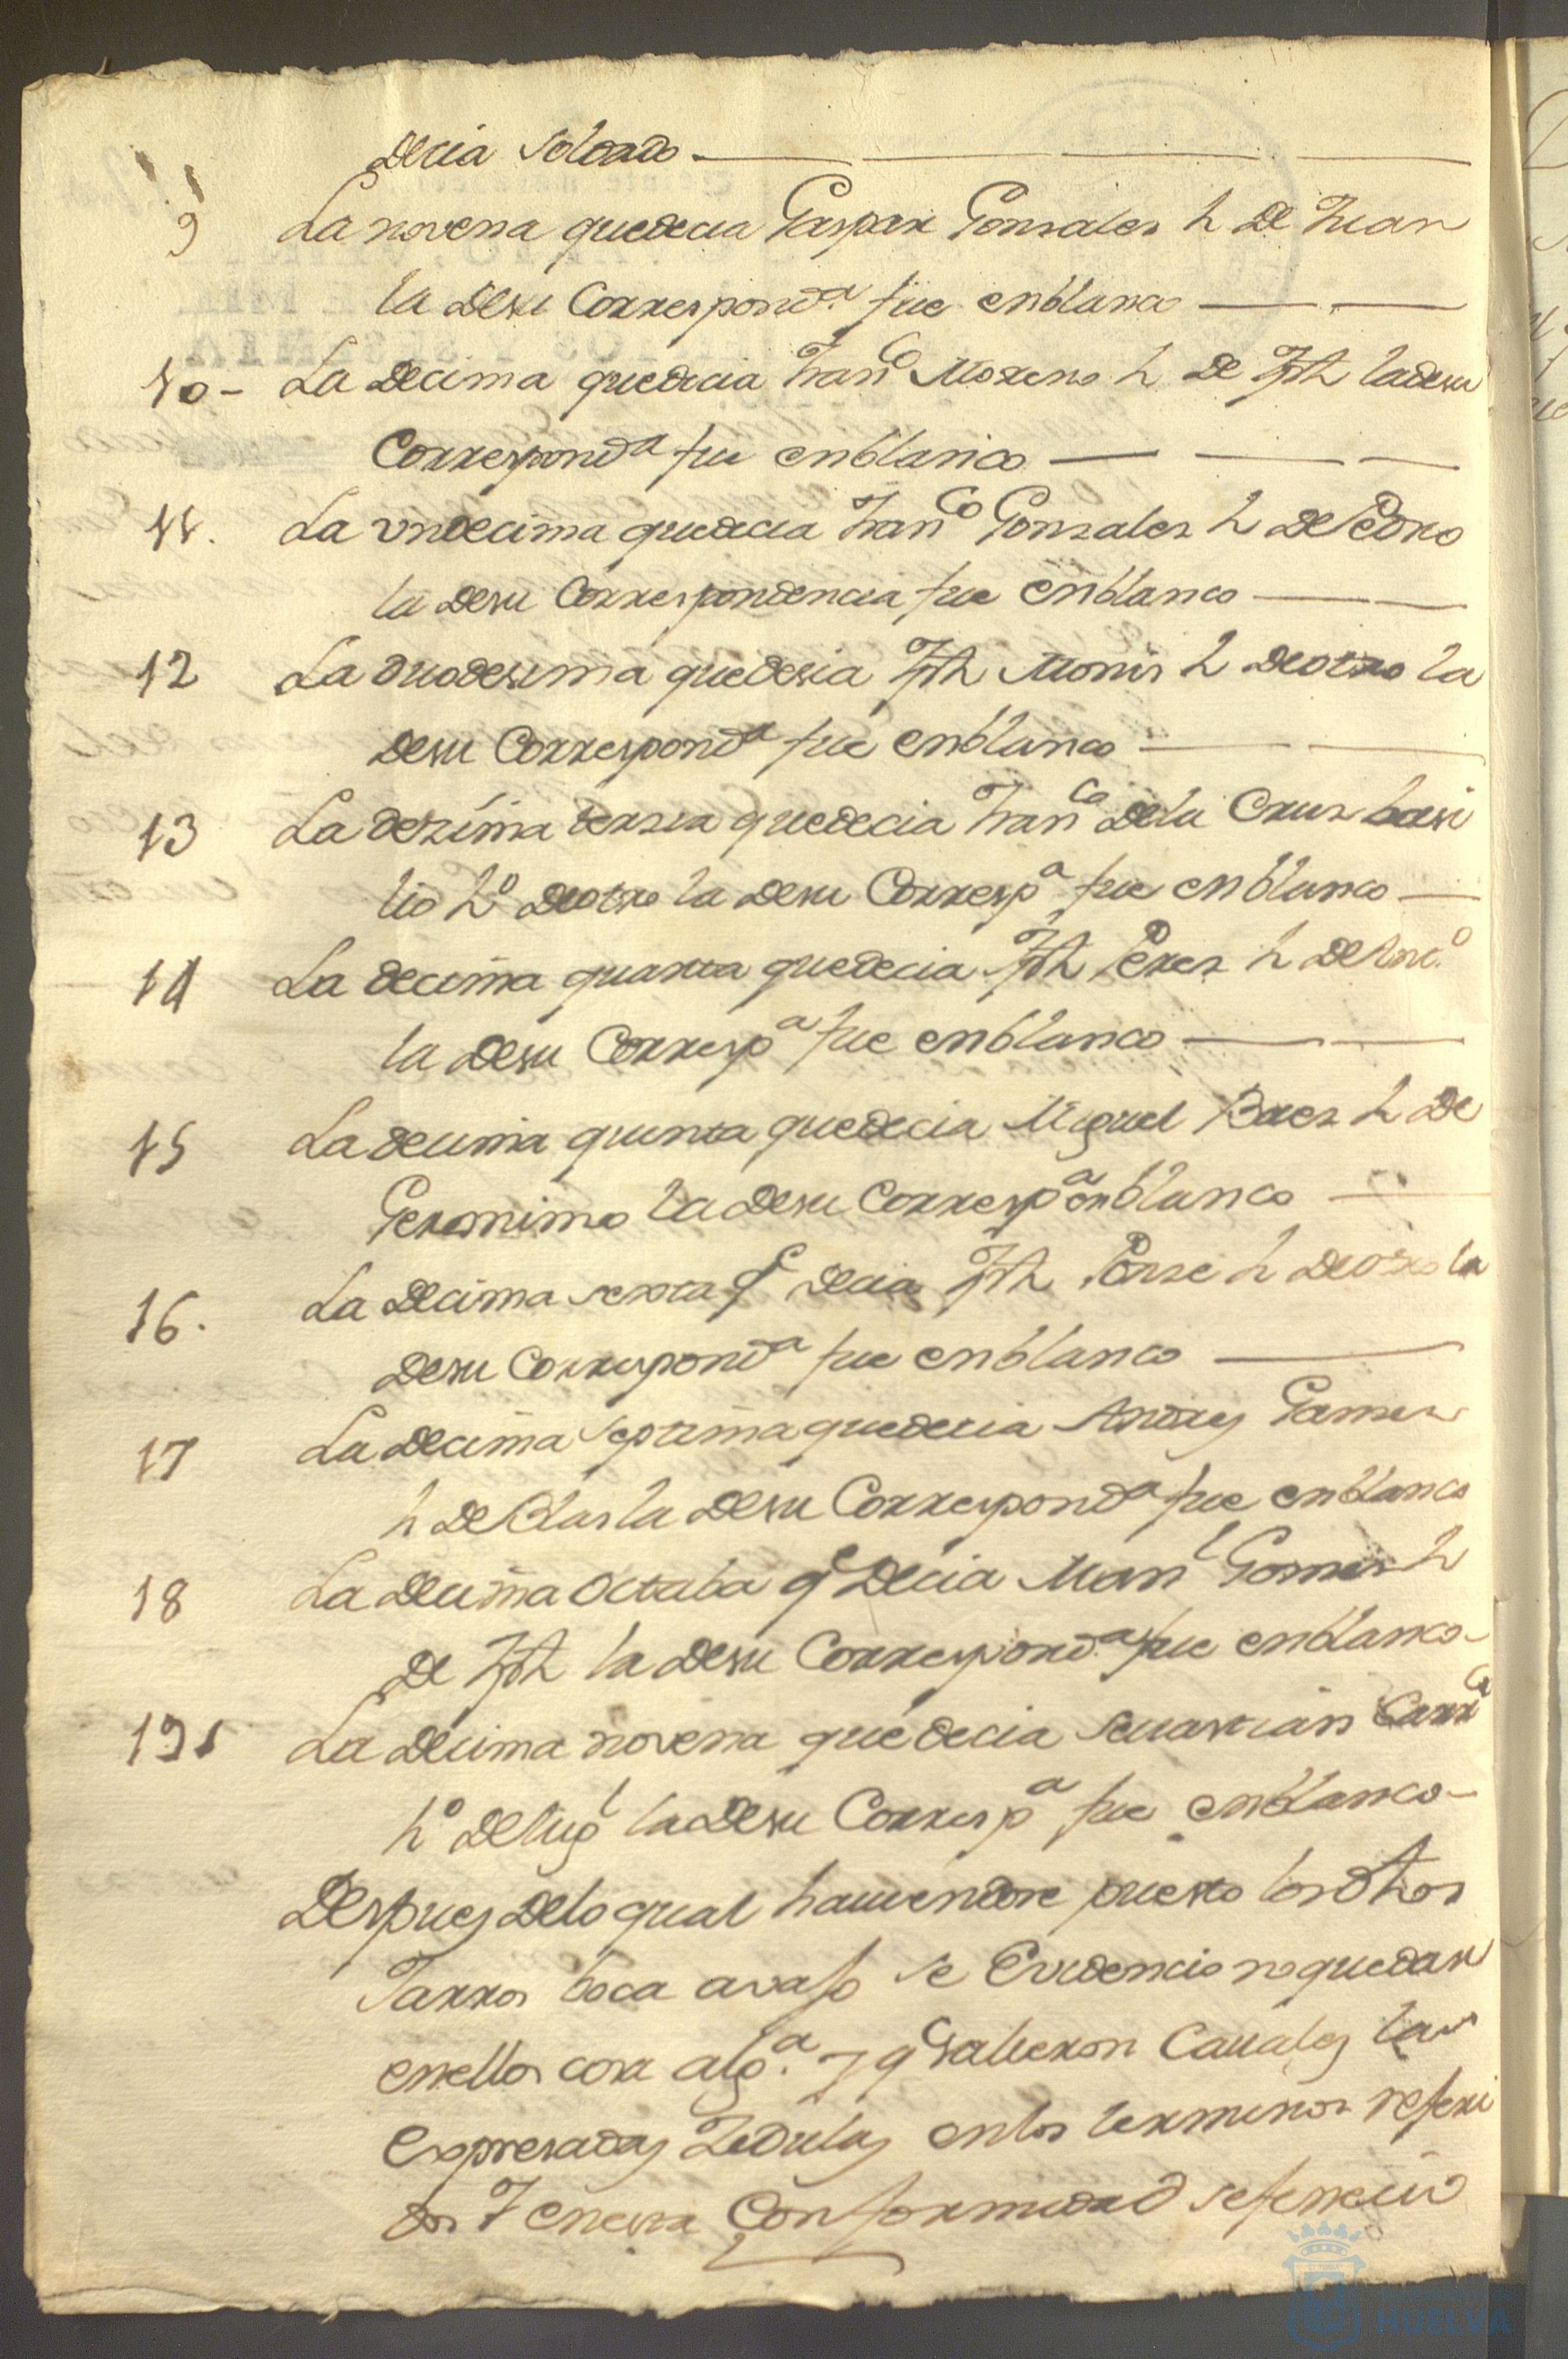 decia soldado
9 La novena quedecia Gaspar Gonsales h de Juan
la desu Correspond.ª fue enblanco
10 - La decima quedecia Franco Moreno h de Jph ladesu
Correspondª fue enblanco
11. La undecima quedecia Franco Gonsales h de Pedro
la desu Correspondencia fue enblanco
12 La duodesima quedesia Jph Monis h deotro la
desu Correspondª fue enblanco
13 La dezima tersia quedecia Franco dela Crus basi
lio hº deotro la desu Correspª fue enblanco
14 La decima quarta quedecia Jph Peres h de
la desu Correspª fue enblanco
15 La decima quinta quedecia Miguel Baes h de
Geronimo la desu Correspª enblanco
16. La decima sexta qe decia Jph Ponse h deotro la
desu Correspondª fue enblanco
17 La decima septima quedecia Andres
h de Blas la desu Correspondª fue enblanco
18 La decima octaba qe decia Manl Gomes h
de Jph la desu Correspond.ª fue enblanco
19 La decima novena quedecia Sevastian
hº de la desu Correspª fue enblanco
Despues delo qual haviendose puesto losdhos
Jarros boca avajo se Evidencio noquedar
enellos cosa algª. y qe salieron Cavales las
expresadas Zedulas enlos terminos referi
dos Y enesta Conformidad sefenecio
HUELVA